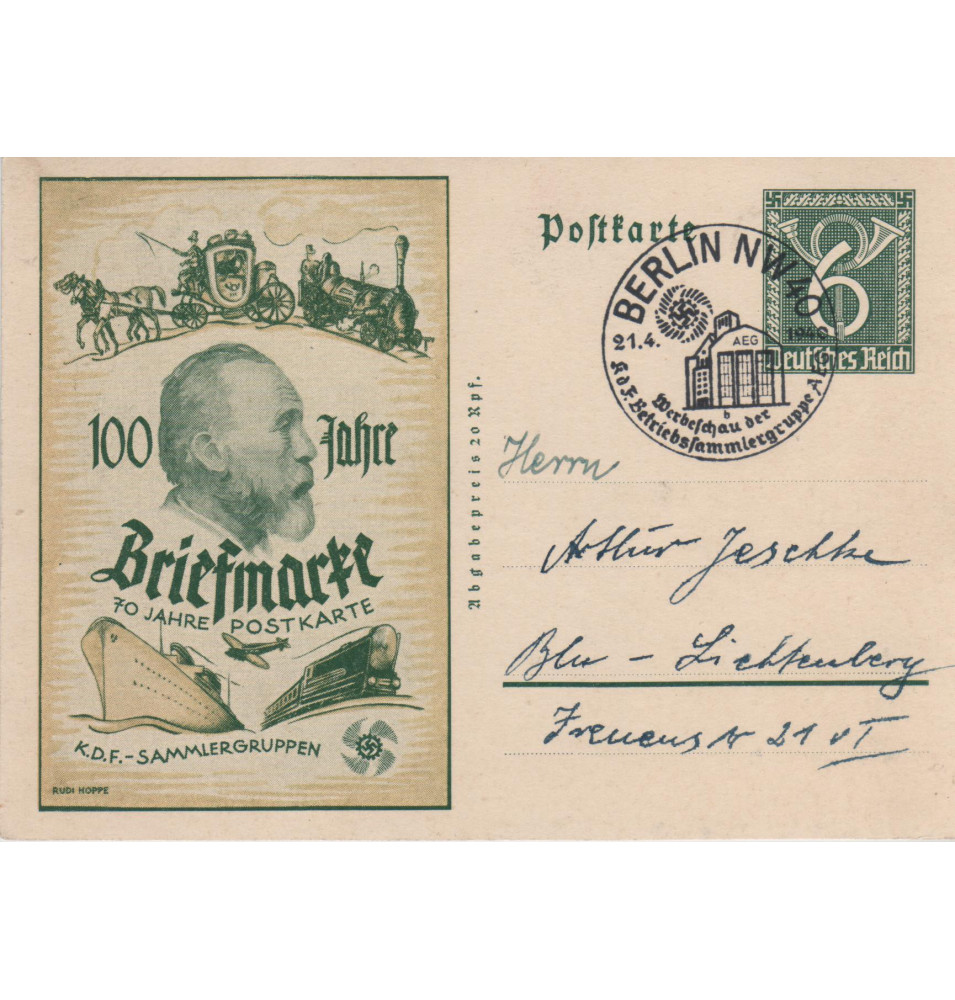 100 Jahre
Briefmarke
70 JAHRE POSTKARTE
K.D.F.-SAMMLERGRUPPEN
RUDI HOPPE
Abgabepreis 20 Rpf.
Postkarte
6
Deutsches Reich
BERLIN NW 40
21.4. 1940
AEG
b
Werbeschau der
KdF. Betriebssammlergruppe AEG
Herrn
Arthur Jeschke
Bln - Lichtenberg
21 VI